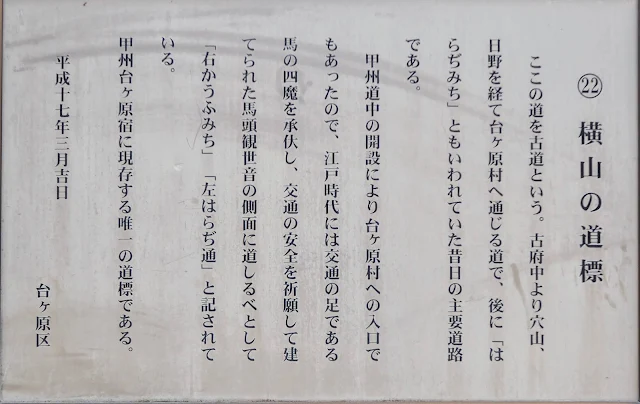 ㉒ 横山の道標
ここの道を古道という。古府中より穴山、
日野を経て台ヶ原村へ通じる道で、後に「は
らぢみち」ともいわれていた昔日の主要道路
である。
甲州道中の開設により台ヶ原村への入口で
もあったので、江戸時代には交通の足である
馬の四魔を承伏し、交通の安全を祈願して建
てられた馬頭観世音の側面に道しるべとして
「右かうふみち」「左はらぢ通」と記されて
いる。
甲州台ヶ原宿に現存する唯一の道標である。
平成十七年三月吉日
台ヶ原区